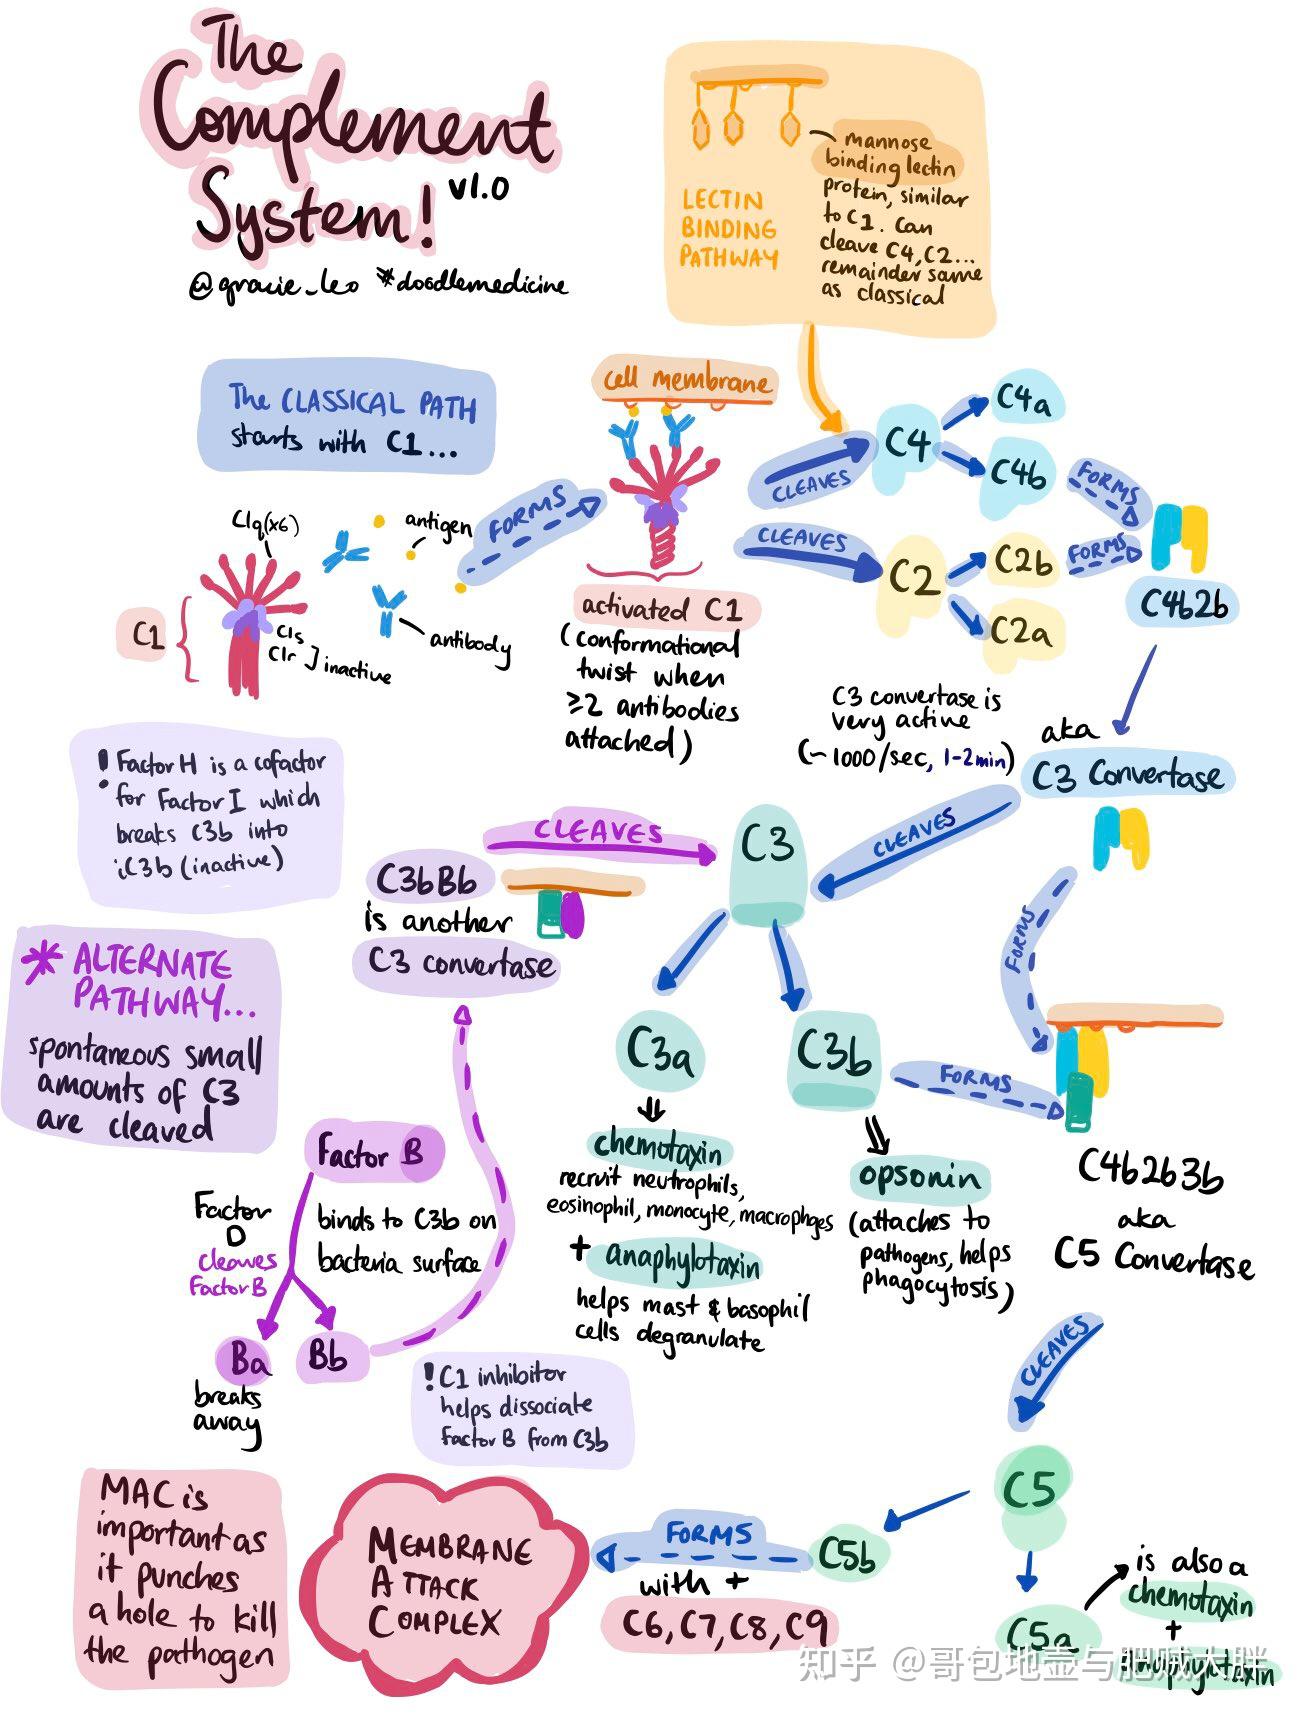 The
Complement
System! v1.0
@gracie_leo #doodlemedicine
LECTIN
BINDING
PATHWAY
mannose
binding lectin
protein, similar
to C1. Can
cleave C4, C2...
remainder same
as classical
The CLASSICAL PATH
starts with C1...
cell membrane
C1q(x6)
antigen
FORMS
C1
C1s
C1r ] inactive
antibody
activated C1
(conformational
twist when
≥2 antibodies
attached)
CLEAVES
C4
C4a
C4b
FORMS
CLEAVES
C2
C2b
FORMS
C2a
C4b2b
C3 convertase is
very active
(~1000/sec, 1-2min)
aka
C3 Convertase
! Factor H is a cofactor
for Factor I which
breaks C3b into
iC3b (inactive)
CLEAVES
C3
CLEAVES
C3bBb
is another
C3 convertase
* ALTERNATE
PATHWAY...
spontaneous small
amounts of C3
are cleaved
FORMS
C3a
C3b
FORMS
chemotaxin
recruit neutrophils,
eosinophil, monocyte, macrophges
+ anaphylotaxin
helps mast & basophil
cells degranulate
opsonin
(attaches to
pathogens, helps
phagocytosis)
C4b2b3b
aka
C5 Convertase
Factor B
binds to C3b on
bacteria surface
Factor
D
cleaves
Factor B
Ba
breaks
away
Bb
! C1 inhibitor
helps dissociate
Factor B from C3b
CLEAVES
C5
MAC is
important as
it punches
a hole to kill
the pathogen
MEMBRANE
ATTACK
COMPLEX
FORMS
with +
C6, C7, C8, C9
C5b
C5a
is also a
chemotaxin
+
anaphylotaxin
知乎 @哥包地壶与肥贼大胖